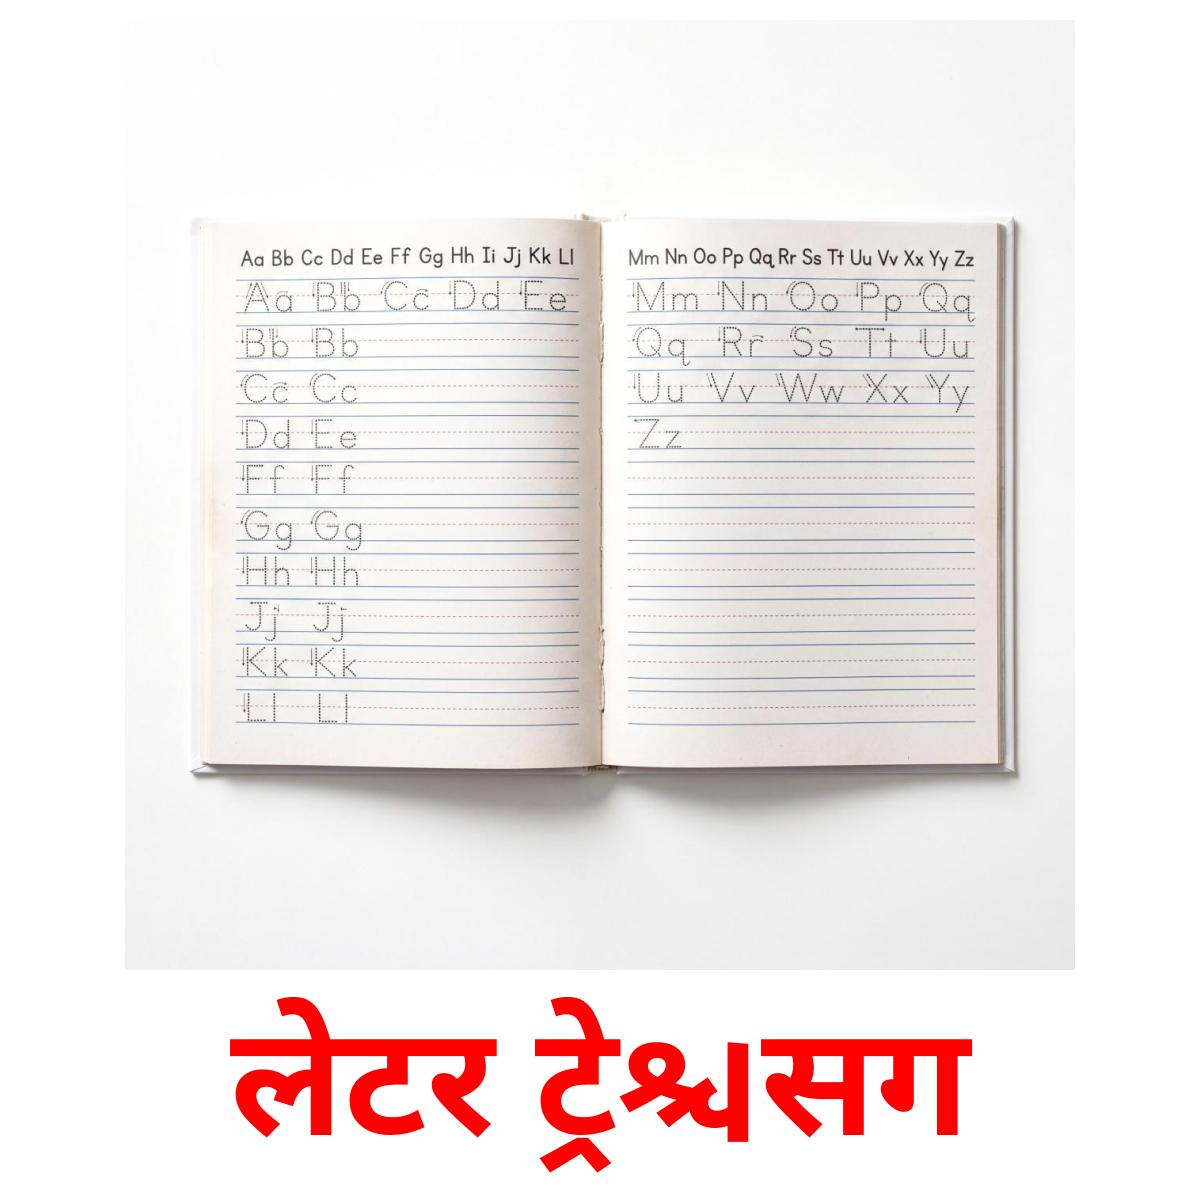 Aa Bb Cc Dd Ee Ff Gg Hh Ii Jj Kk Ll
Aa Bb Cc Dd Ee
Bb Bb
Cc Cc
Dd Ee
Ff Ff
Gg Gg
Hh Hh
Jj Jj
Kk Kk
Ll Ll
Mm Nn Oo Pp Qq Rr Ss Tt Uu Vv Xx Yy Zz
Mm Nn Oo Pp Qq
Qq Rr Ss Tt Uu
Uu Vv Ww Xx Yy
Zz
लेटर